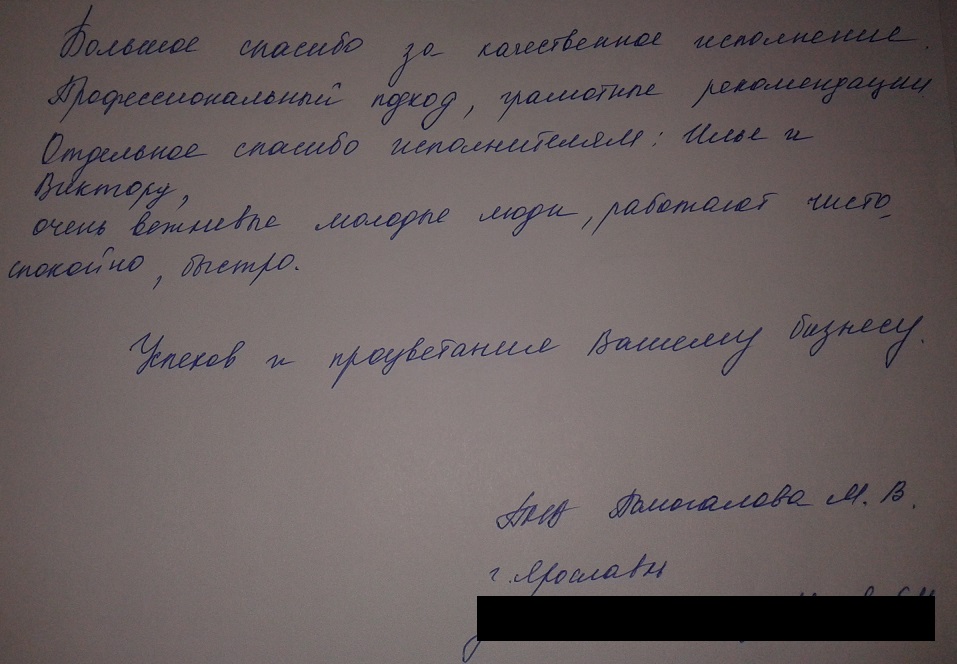 Большое спасибо за качественное исполнение.
Профессиональный подход, грамотные рекомендации
Отдельное спасибо исполнителям: Илье и
Виктору,
очень вежливые молодые люди, работают чисто,
спокойно, быстро.
Успехов и процветания Вашему бизнесу.
М. В.
г. Ярославль